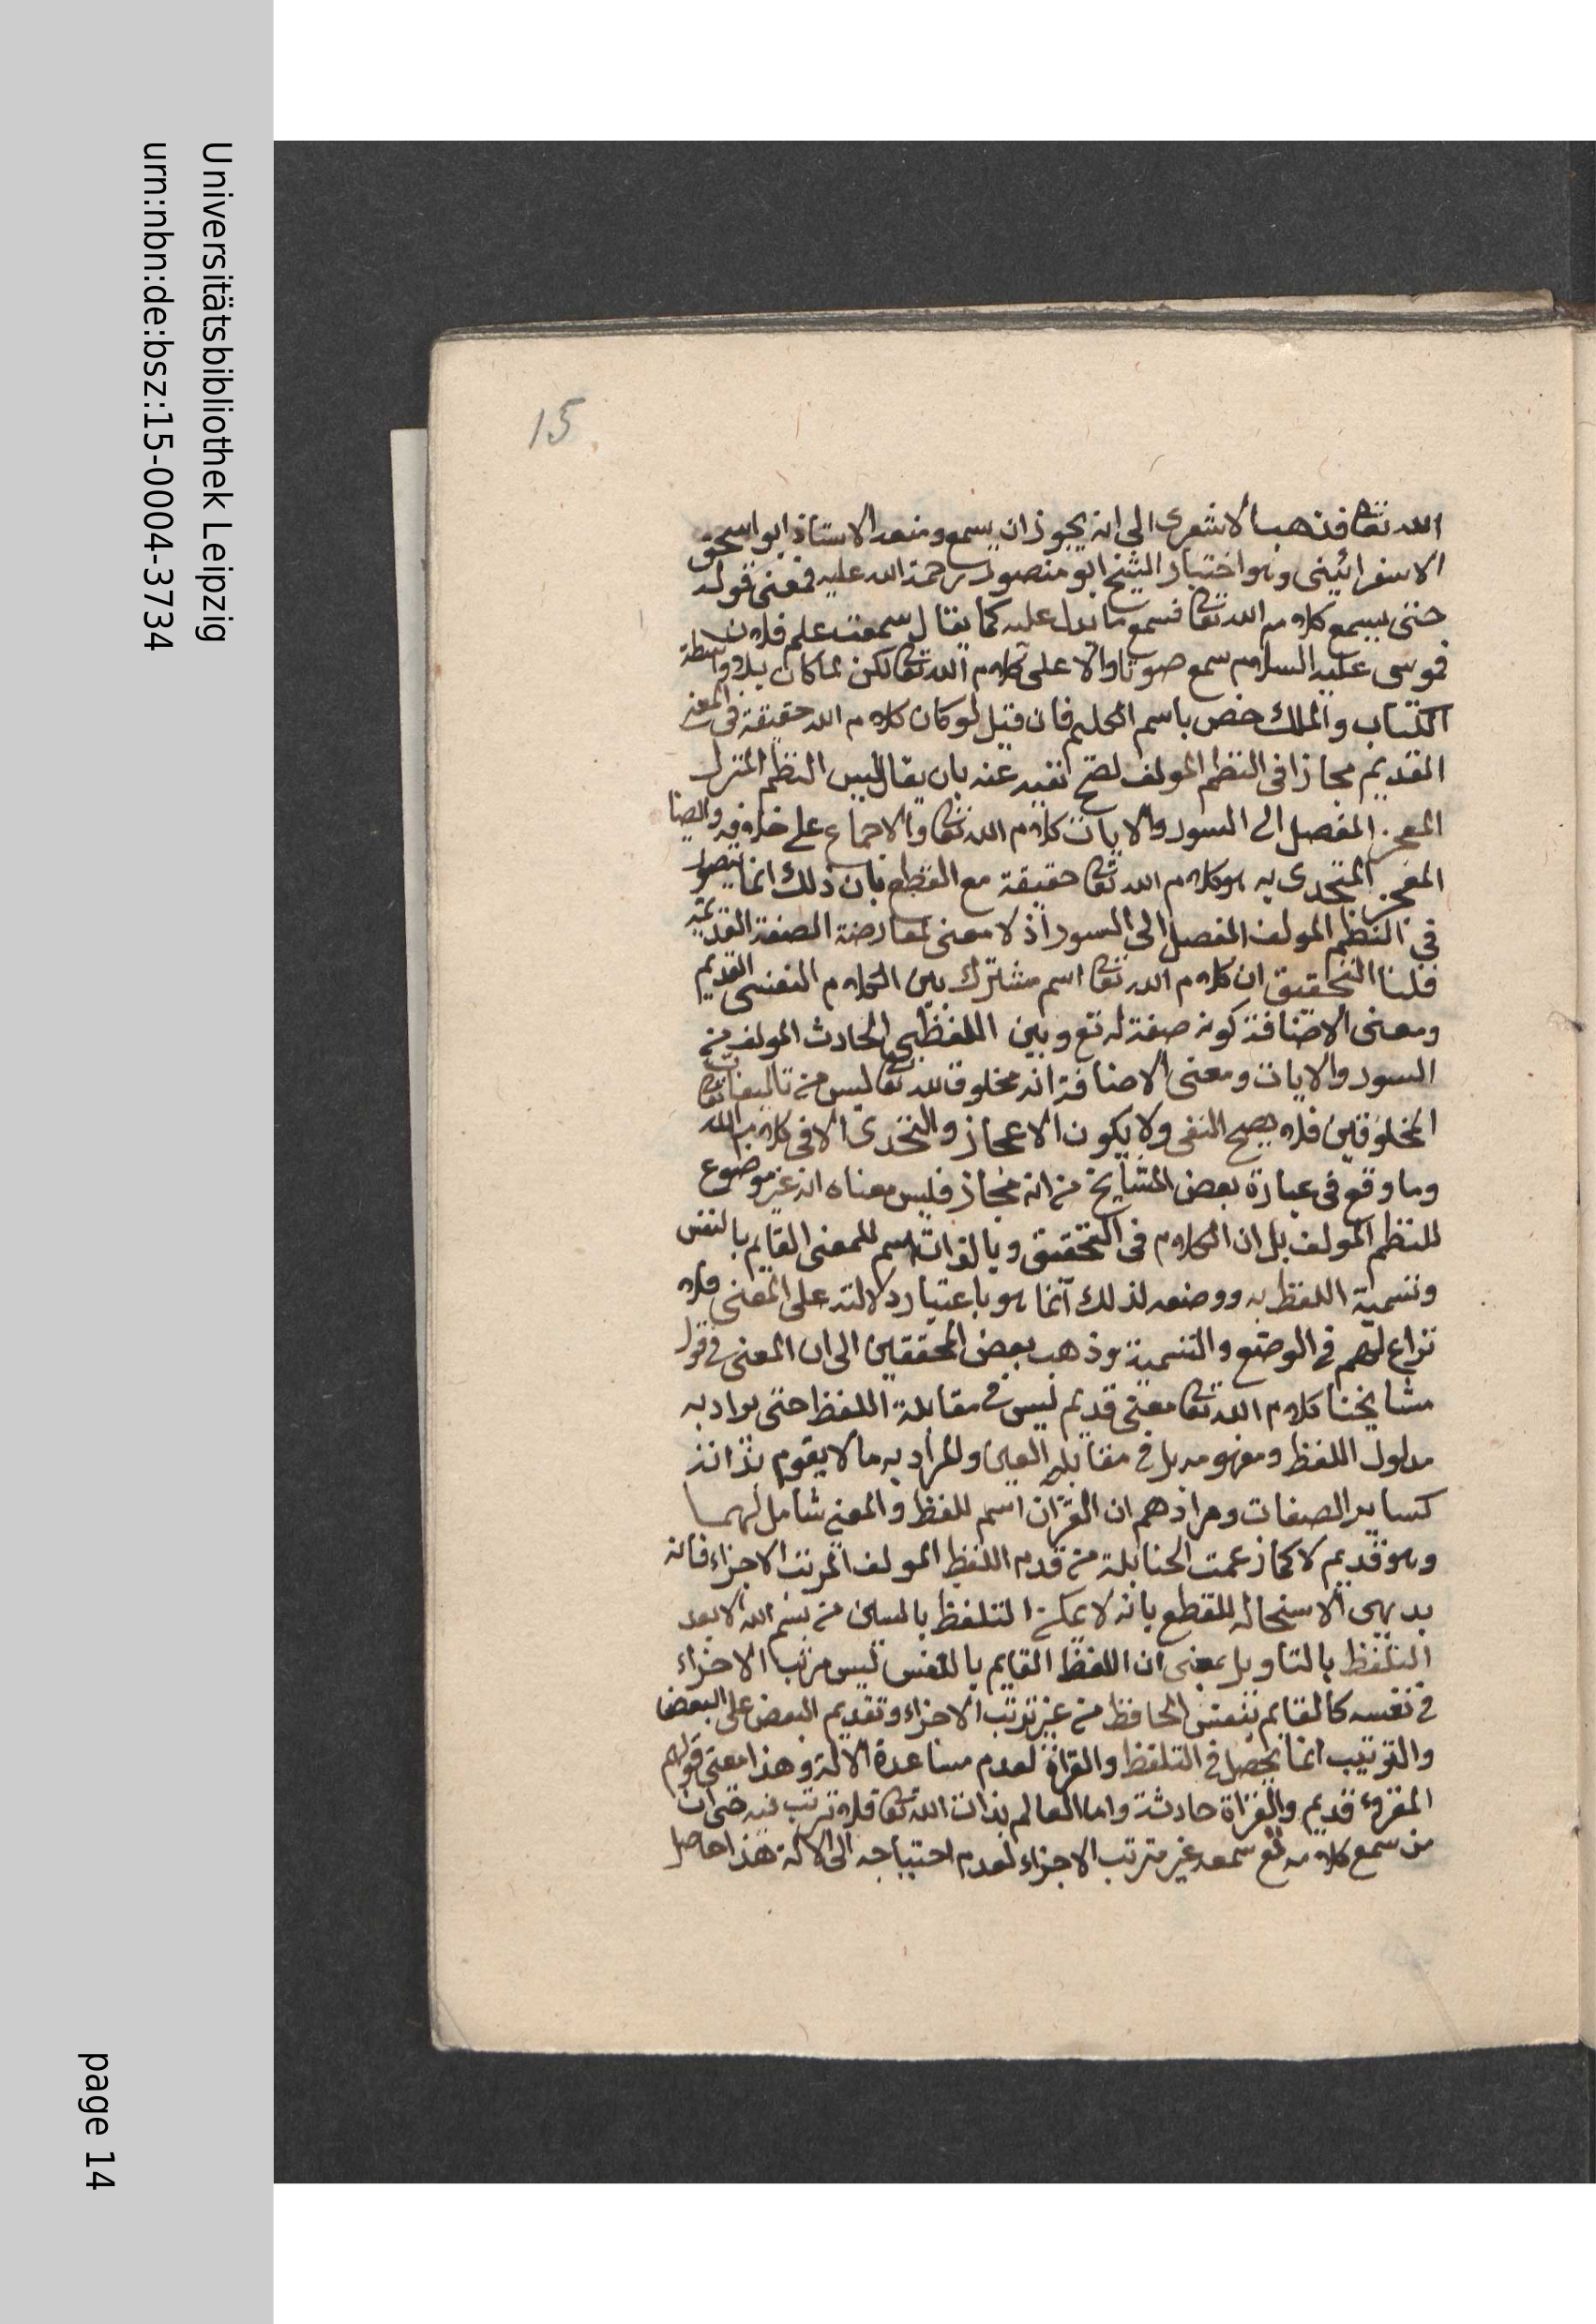 Universitätsbibliothek Leipzig
urn:nbn:de:bsz:15-0004-3734
page 14
15
الله تعا فذهب الاشعرى الى انه يجوز ان يسمع ومنعه الاستاذ ابو اسحق
الاسفرائينى وهو اختيار الشيخ ابو منصور رحمة الله عليه فمعنى قوله
حتى يسمع كلام الله تعا فسمع ما يدل عليه كما يقال سمعت علم فلان
فموسى عليه السلام سمع صوتا دالا على كلام الله تعا لكن لما كان بلا واسطة
الكتاب والملك خص باسم الكليم فان قيل لو كان كلام الله حقيقة فى المعنى
القديم مجازا فى النظم المولف لصح نفيه عنه بان يقال ليس النظم المنزل
المعجز المفصل الى السور والايات كلام الله تعا والاجماع على خلافه وايضا
المعجز المتحدى به هو كلام الله تعا حقيقة مع القطع بان ذلك انما يتصور
فى النظم المولف المفصل الى السور اذ لا معنى لمعارضة الصفة القديمة
قلنا التحقيق ان كلام الله تعا اسم مشترك بين الكلام النفسى القديم
ومعنى الاضافة كونه صفة له تع وبين اللفظى الحادث المولف من
السور والايات ومعنى الاضافة انه مخلوق لله تعا ليس من تاليفات
المخلوقين فلا يصح النفى ولا يكون الاعجاز والتحدى الا فى كلام الله تعا
وما وقع فى عبارة بعض المشايخ من انه مجاز فليس معناه انه غير موضوع
للنظم المولف بل ان الكلام فى التحقيق وبالذات اسم للمعنى القايم بالنفس
وتسمية اللفظ به ووضعه لذلك انما هو باعتبار دلالته على المعنى فلا
نزاع لهم فى الوضع والتسمية وذهب بعض المحققين الى ان المعنى فى قول
مشايخنا كلام الله تعا معنى قديم ليس فى مقابلة اللفظ حتى يراد به
مدلول اللفظ ومفهومه بل فى مقابلة العين والمراد به ما لا يقوم بذاته
كساير الصفات ومرادهم ان القرآن اسم للفظ والمعنى شامل لهما
وهو قديم لا كما زعمت الحنابلة من قدم اللفظ المولف المرتب الاجزاء فانه
بديهى الاستحالة للقطع بانه لا يمكن التلفظ بالسين من بسم الله الا بعد
التلفظ بالتاويل بمعنى ان اللفظ القايم بالنفس ليس مرتب الاجزاء
فى نفسه كالقايم بنفس الحافظ من غير ترتب الاجزاء وتقديم البعض على البعض
والترتيب انما يحصل فى التلفظ والقراة لعدم مساعدة الالة وهذا معنى قولهم
المقروء قديم والقراة حادثة واما العالم بذات الله تعا فلا ترتب فيه حتى ان
من سمع كلامه تع سمعه غير مترتب الاجزاء لعدم احتياجه الى الالة هذا حاصل